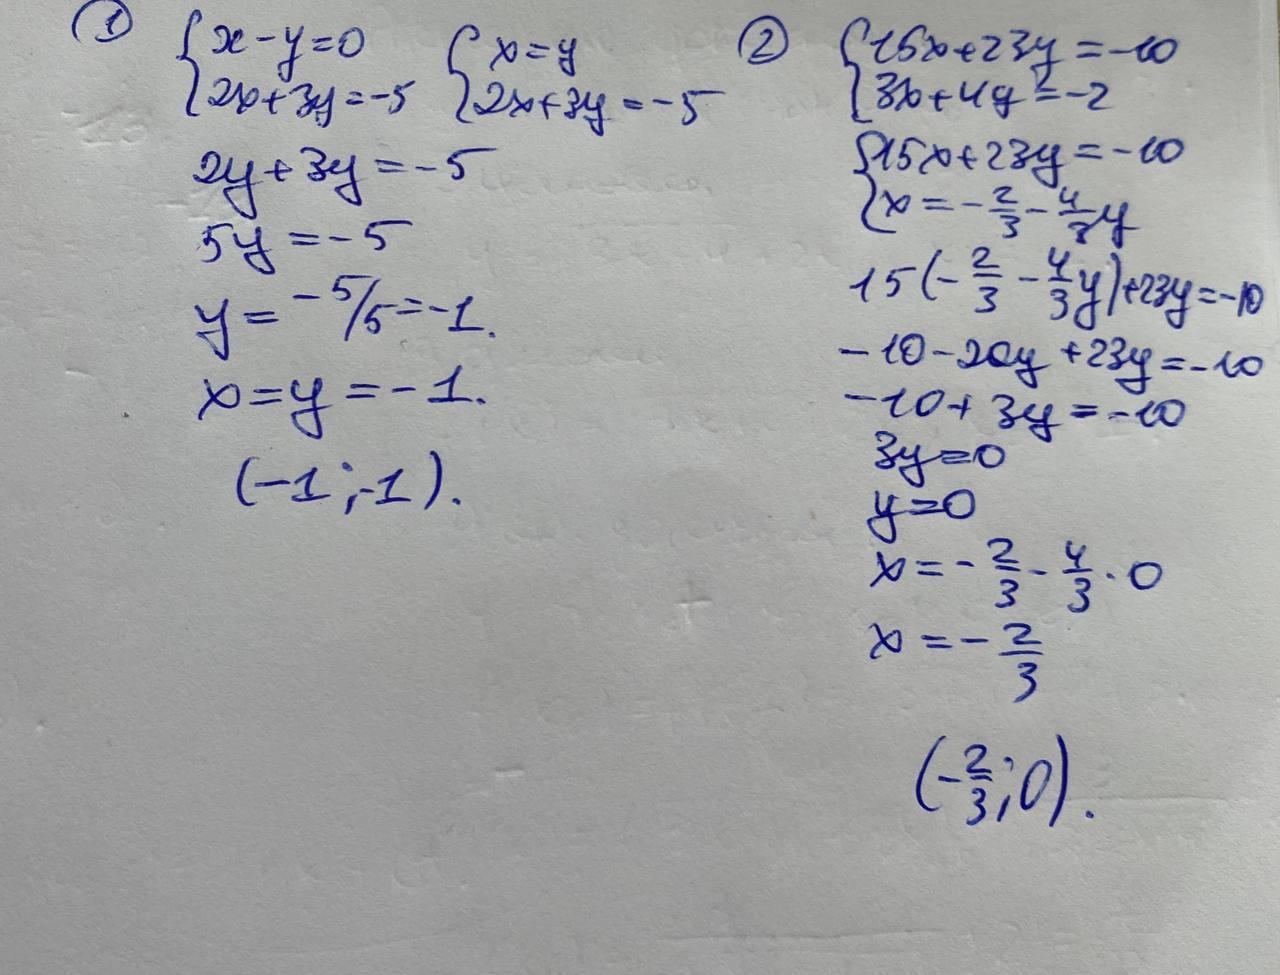 ① { x - y = 0
2x + 3y = -5
{ x = y
2x + 3y = -5
2y + 3y = -5
5y = -5
y = -5/5 = -1.
x = y = -1.
(-1; -1).
② { 15x + 23y = -10
3x + 4y = -2
{ 15x + 23y = -10
x = -2/3 - 4/3 y
15(-2/3 - 4/3 y) + 23y = -10
-10 - 20y + 23y = -10
-10 + 3y = -10
3y = 0
y = 0
x = -2/3 - 4/3 · 0
x = -2/3
(-2/3; 0).